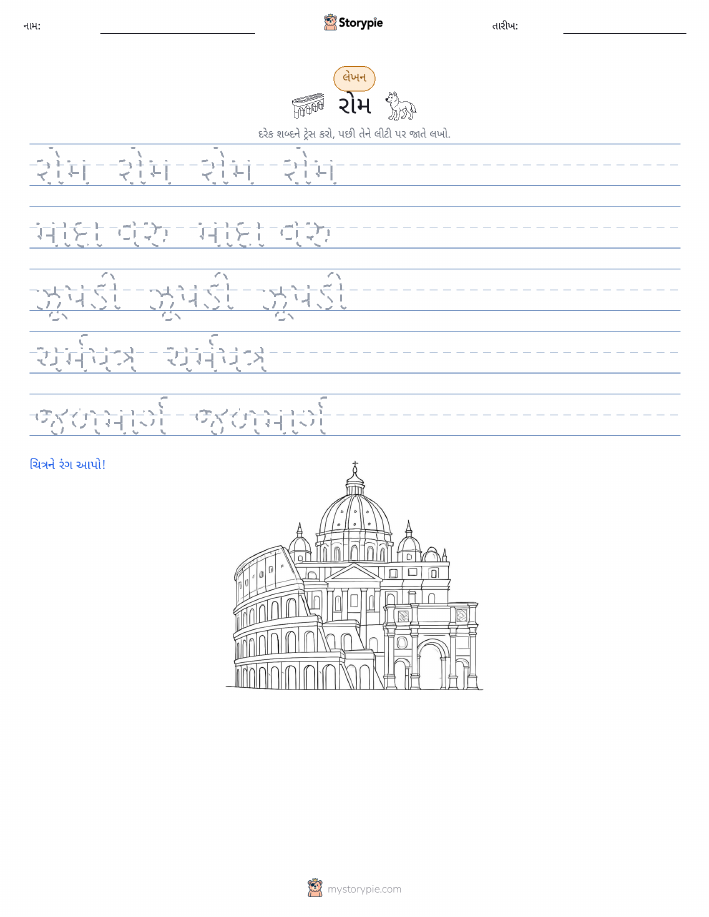 નામ:
Storypie
તારીખ:
લેખન
રોમ
દરેક શબ્દને ટ્રેસ કરો, પછી તેને લીટી પર જાતે લખો.
રોમ રોમ રોમ રોમ
માદા વરુ માદા વરુ
ઝૂંપડી ઝૂંપડી ઝૂંપડી
ચર્મપત્ર ચર્મપત્ર
જળમાર્ગ જળમાર્ગ
ચિત્રને રંગ આપો!
mystorypie.com